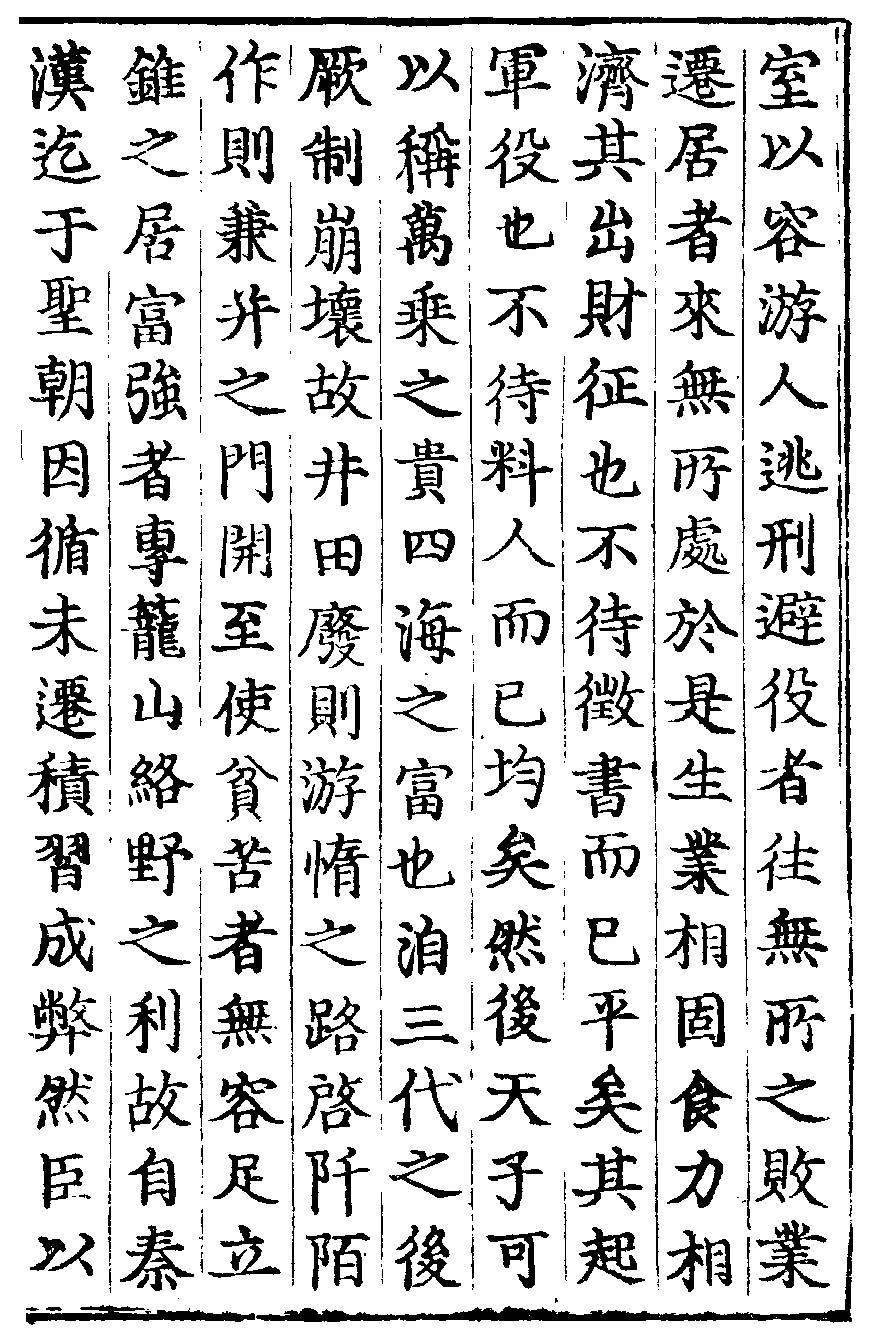 室以容游人逃刑避役者往無所之敗業
遷居者來無所處於是生業相固食力相
濟其出財征也不待徵書而已平矣其起
軍役也不待料人而已均矣然後天子可
以稱萬乗之貴四海之富也洎三代之後
厥制崩壞故井田廢則游惰之路啓阡陌
作則兼并之門開至使貧苦者無容足立
錐之居富強者專籠山絡野之利故自秦
漢迄于聖朝因循未遷積習成弊然臣以